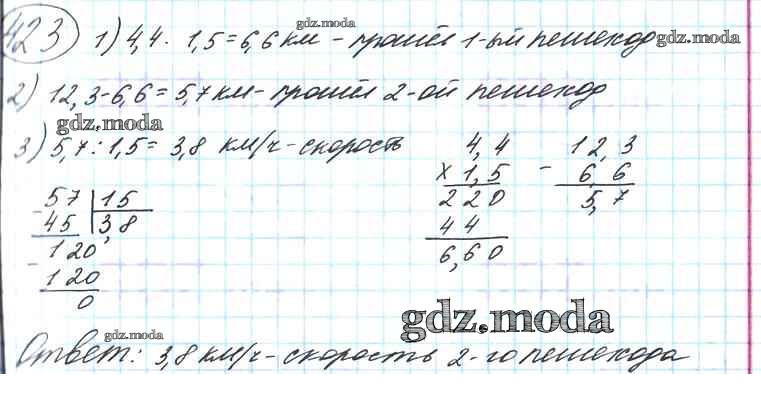 423 1) 4,4 · 1,5 = 6,6 км – прошёл 1-ый пешеход
gdz.moda
gdz.moda
2) 12,3 - 6,6 = 5,7 км – прошёл 2-ой пешеход
gdz.moda
3) 5,7 : 1,5 = 3,8 км/ч – скорость
4,4
× 1,5
220
44
6,60
12,3
- 6,6
5,7
57 | 15
- 45 | 3,8
120
- 120
0
gdz.moda
gdz.moda
Ответ: 3,8 км/ч – скорость 2-го пешехода